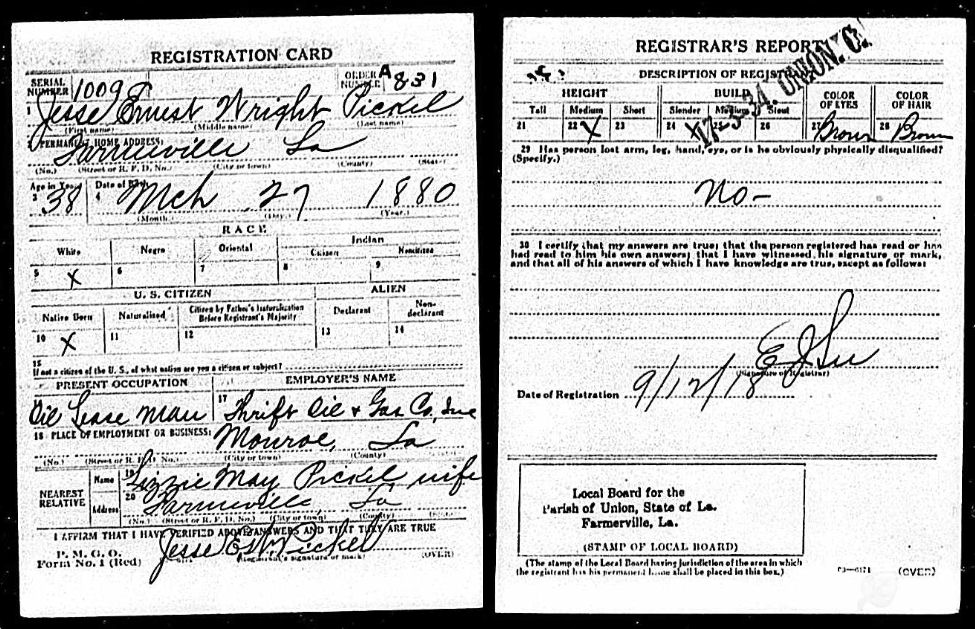 REGISTRATION CARD
SERIAL NUMBER 1009 ORDER NUMBER A831
Jesse Ernest Wright Pickel
(First name) (Middle name) (Last name)
PERMANENT HOME ADDRESS:
Farmerville La
(No.) (Street or R. F. D. No.) (City or town) (County) (State)
Age in Years Date of Birth
3 38 4 Mch 27 1880
(Month.) (Day.) (Year.)
RACE
White Negro Oriental Indian
Citizen Noncitizen
5 X 6 7 8 9
U. S. CITIZEN ALIEN
Native Born Naturalized Citizen by Father's Naturalization Before Registrant's Majority Declarant Non-declarant
10 X 11 12 13 14
15
If not a citizen of the U. S., of what nation are you a citizen or subject?
PRESENT OCCUPATION EMPLOYER'S NAME
Oil Lease Man 17 Thrift Oil & Gas Co, Inc
18 PLACE OF EMPLOYMENT OR BUSINESS:
Monroe, La
(No.) (Street or R. F. D. No.) (City or town) (County)
NEAREST RELATIVE Name 19 Lizzie May Pickel wife
Address 20 Farmerville, La
(No.) (Street or R. F. D. No.) (City or town) (County) (State)
I AFFIRM THAT I HAVE VERIFIED ABOVE ANSWERS AND THAT THEY ARE TRUE
P. M. G. O.
Form No. 1 (Red) Jesse E W Pickel (OVER)
(Registrant's signature or mark)
REGISTRAR'S REPORT
17-3-34. UNION. C.
DESCRIPTION OF REGISTRANT
HEIGHT BUILD COLOR OF EYES COLOR OF HAIR
Tall Medium Short Slender Medium Stout
21 22 X 23 24 X 25 26 27 Brown 28 Brown
29 Has person lost arm, leg, hand, eye, or is he obviously physically disqualified?
(Specify.)
No-
30 I certify that my answers are true; that the person registered has read or has
had read to him his own answers; that I have witnessed his signature or mark,
and that all of his answers of which I have knowledge are true, except as follows:
E J
(Signature of Registrar)
Date of Registration 9/12/18
Local Board for the
Parish of Union, State of La.
Farmerville, La.
(STAMP OF LOCAL BOARD)
(The stamp of the Local Board having jurisdiction of the area in which
the registrant has his permanent home shall be placed in this box.)
(OVER)